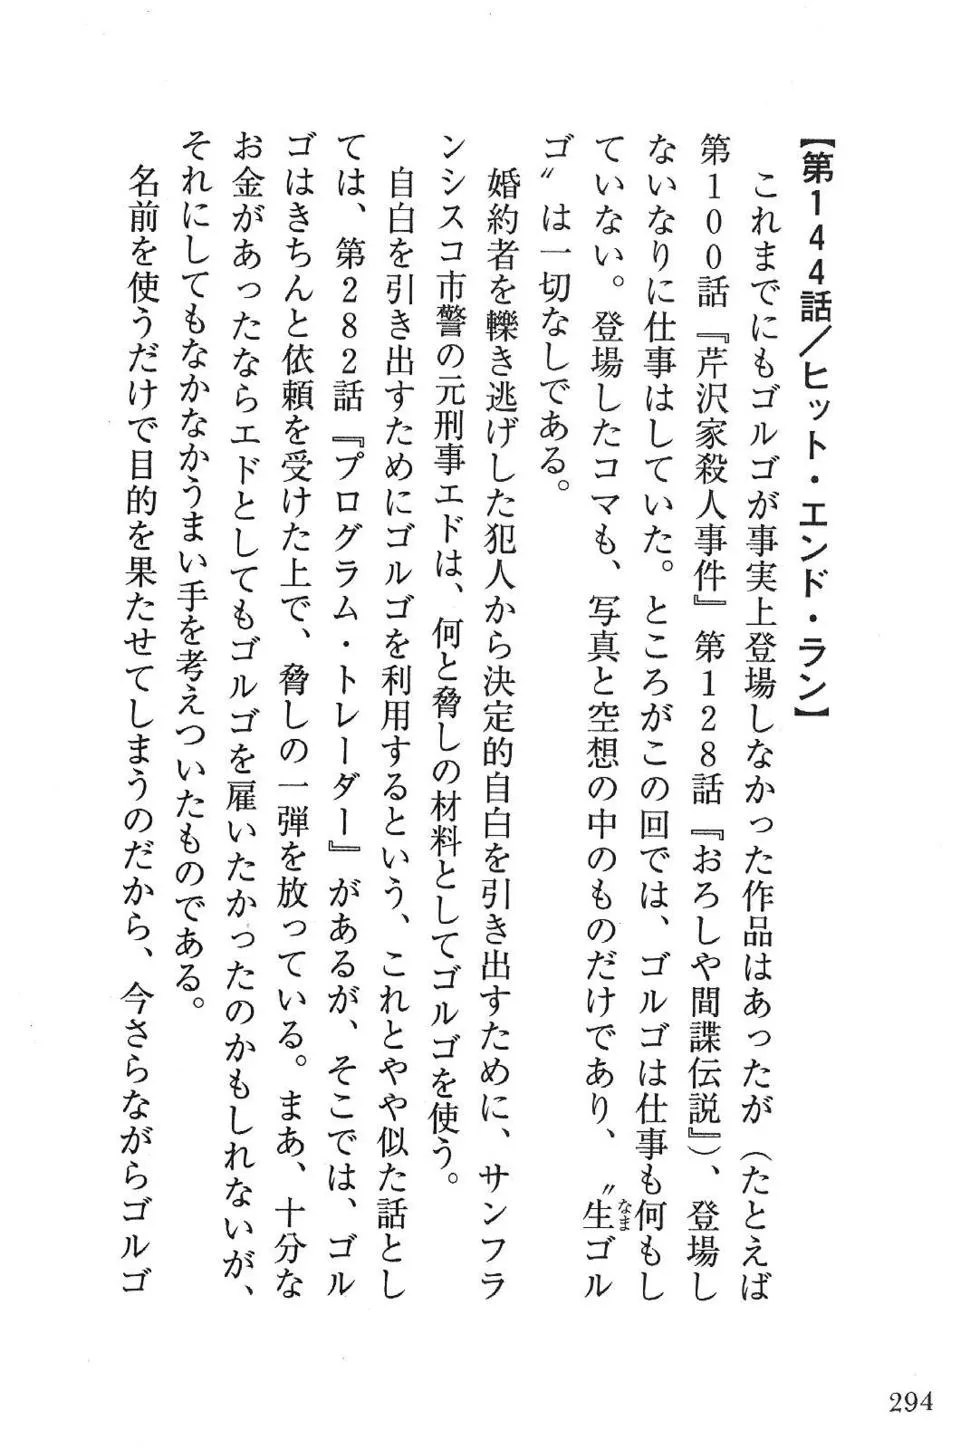 【第144話／ヒット・エンド・ラン】
これまでにもゴルゴが事実上登場しなかった作品はあったが（たとえば
第100話『芹沢家殺人事件』第128話『おろしや間諜伝説』）、登場し
ないなりに仕事はしていた。ところがこの回では、ゴルゴは仕事も何もし
ていない。登場したコマも、写真と空想の中のものだけであり、〝生ゴル
なま
ゴ〟は一切なしである。
婚約者を轢き逃げした犯人から決定的自白を引き出すために、サンフラ
ンシスコ市警の元刑事エドは、何と脅しの材料としてゴルゴを使う。
自白を引き出すためにゴルゴを利用するという、これとやや似た話とし
ては、第282話『プログラム・トレーダー』があるが、そこでは、ゴル
ゴはきちんと依頼を受けた上で、脅しの一弾を放っている。まあ、十分な
お金があったならエドとしてもゴルゴを雇いたかったのかもしれないが、
それにしてもなかなかうまい手を考えついたものである。
名前を使うだけで目的を果たせてしまうのだから、今さらながらゴルゴ
294